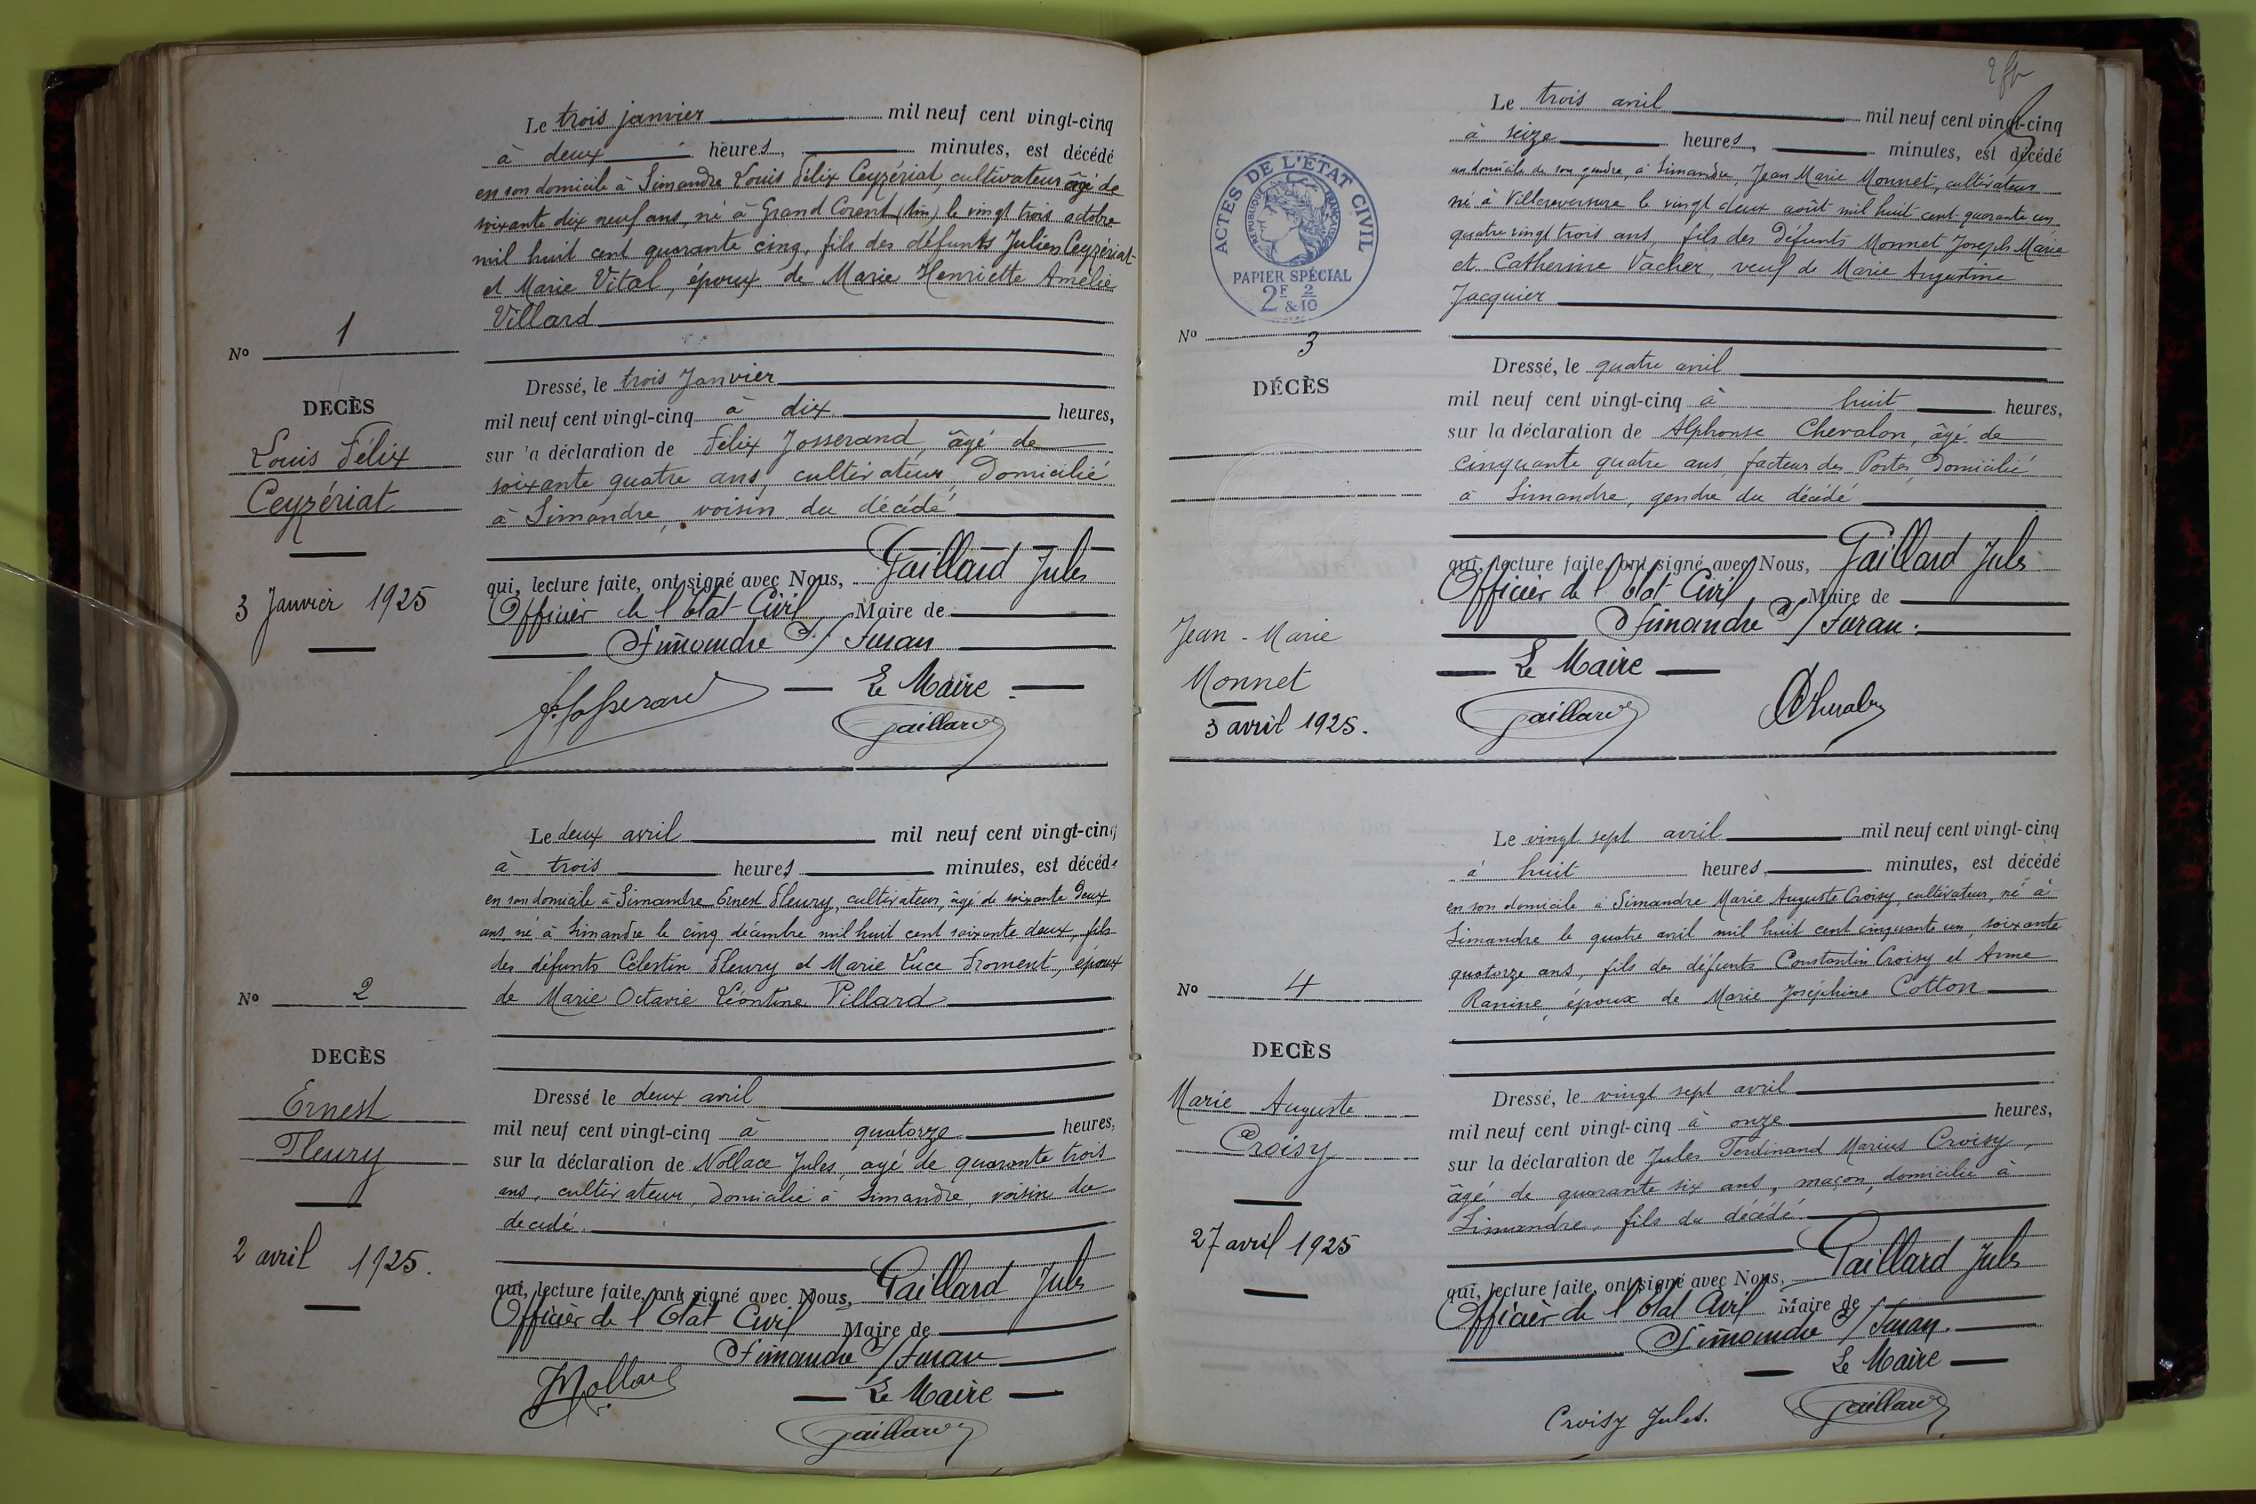 Le trois janvier mil neuf cent vingt-cinq
à deux heures, minutes, est décédé
en son domicile à Simandre Louis Félix Ceyzériat, cultivateur âgé de
soixante dix neuf ans, né à Grand Corent (Ain) le vingt trois octobre
mil huit cent quarante cinq, fils des défunts Julien Ceyzériat
et Marie Vital, époux de Marie Henriette Amélie
Villard
No 1
DECÈS
Louis Félix
Ceyzériat
3 Janvier 1925
Dressé, le trois Janvier
mil neuf cent vingt-cinq à dix heures,
sur la déclaration de Félix Josserand, âgé de
soixante quatre ans, cultivateur, domicilié
à Simandre, voisin du décédé
qui, lecture faite, ont signé avec Nous, Gaillard Jules
Officier de l'Etat Civil Maire de
Simandre s/ Suran
Le Maire
Gaillard
Le deux avril mil neuf cent vingt-cinq
à trois heures minutes, est décédé
en son domicile à Simandre Ernest Fleury, cultivateur, âgé de soixante deux
ans, né à Simandre le cinq décembre mil huit cent soixante deux, fils
des défunts Célestin Fleury et Marie Luce Froment, époux
de Marie Octavie Léontine Pillard
No 2
DECÈS
Ernest
Fleury
2 avril 1925.
Dressé le deux avril
mil neuf cent vingt-cinq à quatorze heures,
sur la déclaration de Nollace Jules, agé de quarante trois
ans, cultivateur, domicilié à Simandre, voisin du
decedé.
qui, lecture faite, ont signé avec Nous, Gaillard Jules
Officier de l'Etat Civil Maire de
Simandre s/ Suran
Le Maire
Gaillard
ACTES DE L'ÉTAT CIVIL
RÉPUBLIQUE FRANÇAISE
PAPIER SPÉCIAL
2F & 2/10
Le trois avril mil neuf cent vingt-cinq
à seize heures, minutes, est décédé
au domicile de son gendre, à Simandre, Jean Marie Monnet, cultivateur
né à Villereversure le vingt deux août mil huit cent quarante un
quatre vingt trois ans, fils des défunts Monnet Joseph Marie
et Catherine Vacher, veuf de Marie Augustine
Jacquier
No 3
DÉCÈS
Jean-Marie
Monnet
3 avril 1925.
Dressé, le quatre avril
mil neuf cent vingt-cinq à huit heures,
sur la déclaration de Alphonse Chevalon, âgé de
cinquante quatre ans, facteur des Postes, domicilié
à Simandre, gendre du décédé
qui, lecture faite, ont signé avec Nous, Gaillard Jules
Officier de l'Etat Civil Maire de
Simandre s/ Suran.
Le Maire
Gaillard
Le vingt sept avril mil neuf cent vingt-cinq
à huit heures, minutes, est décédé
en son domicile à Simandre Marie Auguste Croisy, cultivateur, né à
Simandre le quatre avril mil huit cent cinquante un, soixante
quatorze ans, fils des défunts Constantin Croisy et Anne
Ranine, époux de Marie Joséphine Cotton
No 4
DECÈS
Marie Auguste
Croisy
27 avril 1925
Dressé, le vingt sept avril
mil neuf cent vingt-cinq à onze heures,
sur la déclaration de Jules Ferdinand Marius Croisy,
âgé de quarante six ans, maçon, domicilié à
Simandre, fils du décédé
qui, lecture faite, ont signé avec Nous, Gaillard Jules
Officier de l'Etat Civil Maire de
Simandre s/ Suran.
Le Maire
Croisy Jules. Gaillard